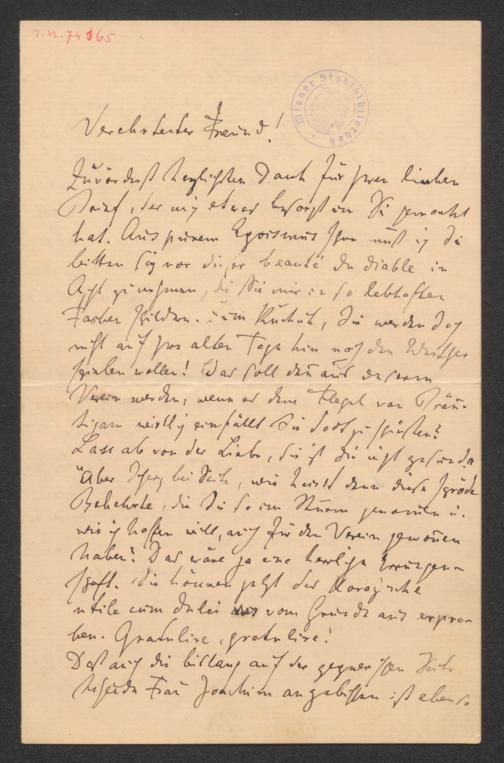 I.N. 74165
Wiener Stadtbibliothek
Verehrtester Freund!
Zuvörderst herzlichsten Dank für Ihren lieben
Brief, der mich etwas besorgt um Sie gemacht
hat. Aus purem Egoismus schon muß ich Sie
bitten sich vor dieser beauté du diable in
Acht zu nehmen, die Sie mir in so lebhaften
Farben schildern. Zum Kuckuk, Sie werden doch
nicht auf Ihre alten Tage hin noch den Werther
spielen wollen! Was soll denn aus unserem
Verein werden, wenn es dem Flegel von Bräu-
tigam einfällt Sie todtzuschießen?
Lass ab von der Liebe, sie ist dir nicht gesund
Aber Scherz bei Seite, wie heisst denn diese spröde
Bekehrte, die Sie so im Sturm genommen u.
wie ich hoffen will, auch für den Verein gewonnen
haben? Das wäre ja eine herrliche Errungen-
schaft. Sie können jetzt das Horazische
utile cum dulci vom Grunde aus erpro-
ben. Gratulire, gratulire!
Daß auch die bislang auf der gegnerischen Seite
Frau Joachim angebissen ist ebenso